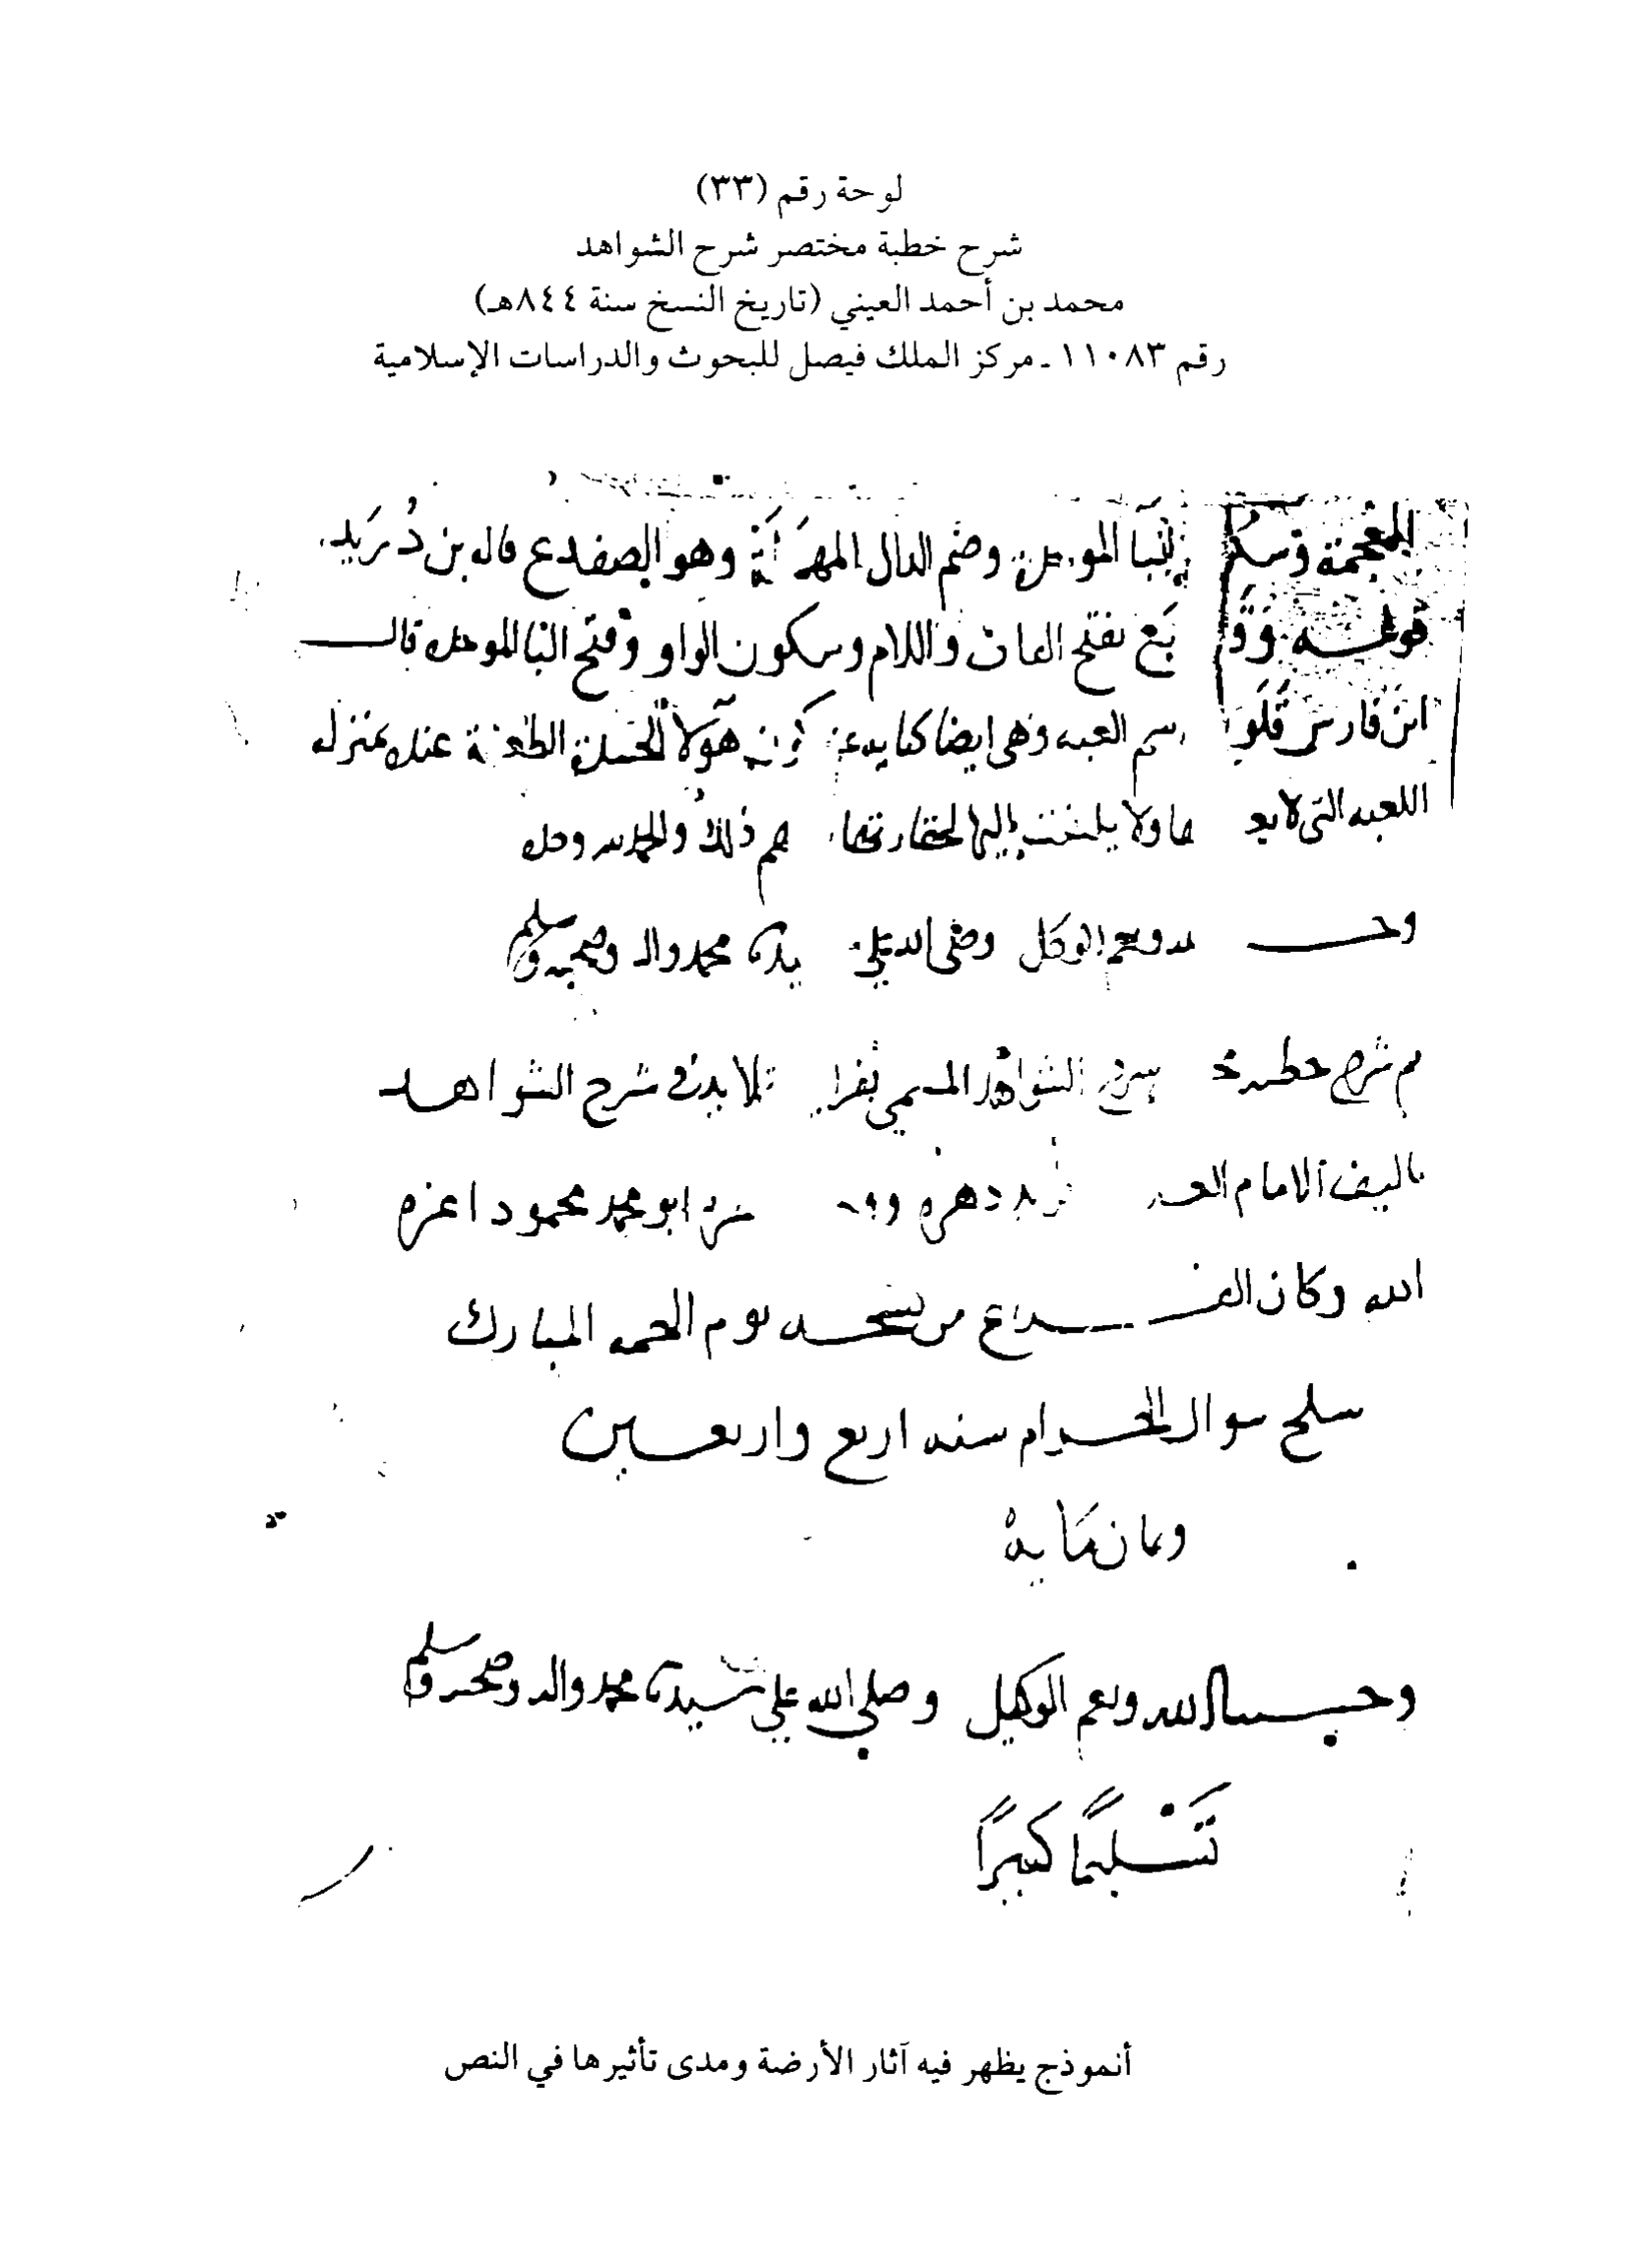 لوحة رقم (٣٣)
شرح خطبة مختصر شرح الشواهد
محمد بن أحمد العيني (تاريخ النسخ سنة ٨٤٤هـ)
رقم ١١٠٨٣ ـ مركز الملك فيصل للبحوث والدراسات الإسلامية
المعجمة وسكو البا الموحدة وضم الدال المهملة وهو الضفدع قاله بن دُرَيد
قوله بَع بفتح القاف واللام وسكون الواو وفتح البا الموحده قال
ابن فارس قَلَو اسم لعبه وهي ايضا كنايه عن كون هولا الطعنة عنده بمنزله
اللعبه التي لا ها ولا يلتفت إليها لحقارتها ذلك والحمد لله وحده
ونعم الوكيل وصلى الله علي محمد واله وصحبه وسلم
شرح الشواهد المسمى بفرا في شرح الشواهد
تاليف الامام دهره ابو محمد محمود اعزه
الله وكان الفـــراغ من نسخـه يوم الجمعه المبارك
سلخ شوال الحـرام سنه اربع واربعـين
وثمان مَايه
وحسبنا الله ونعم الوكيل وصلى الله علي سيدنا محمد واله وصحبه وسلم
تَسْليمًا كثيرًا
أنموذج يظهر فيه آثار الأرضة ومدى تأثيرها في النص